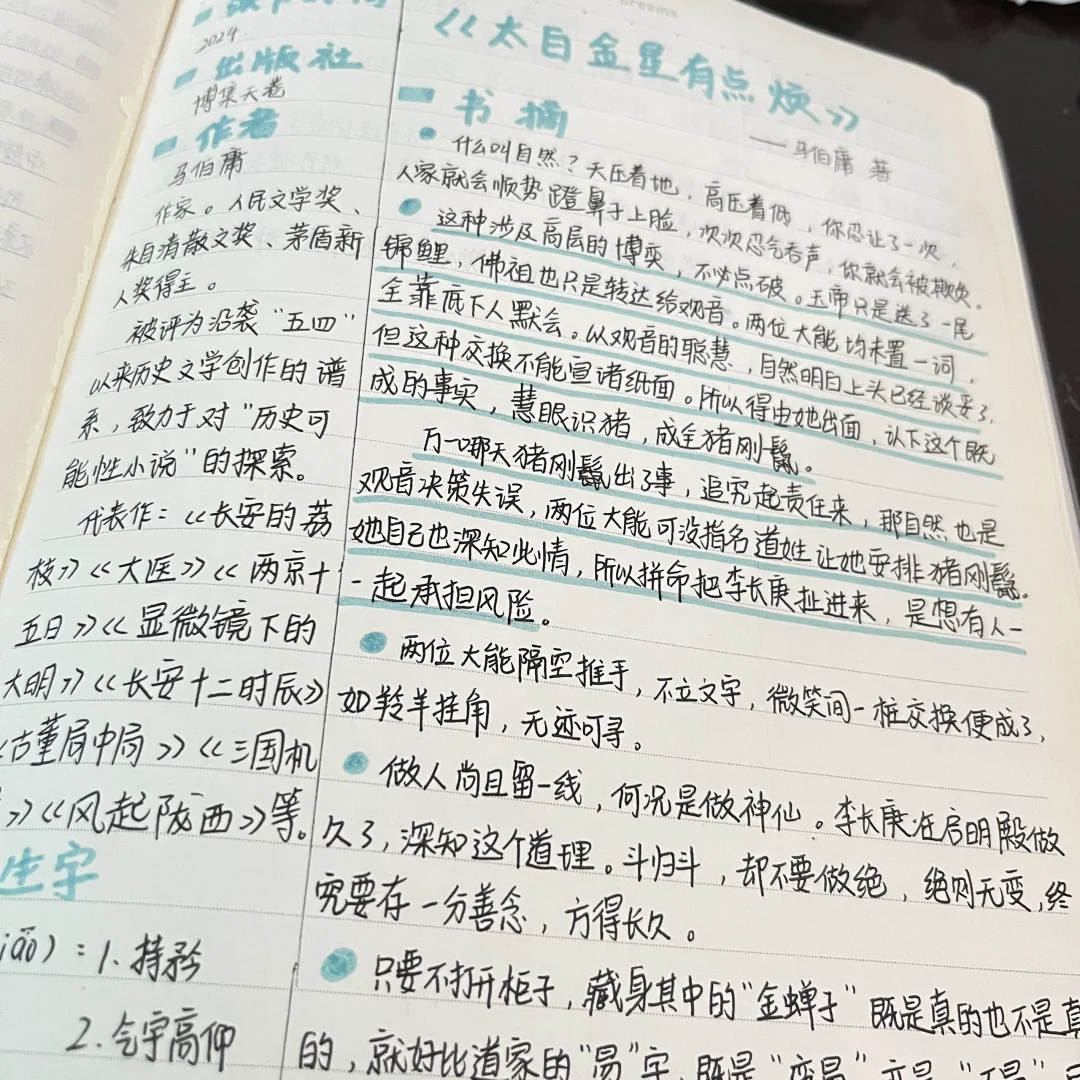 dreams
2024
出版社
博集天卷
作者
马伯庸
作家。人民文学奖、
朱自清散文奖、茅盾新
人奖得主。
被评为沿袭“五四”
以来历史文学创作的谱
系，致力于对“历史可
能性小说”的探索。
代表作：《长安的荔
枝》《大医》《两京十
五日》《显微镜下的
大明》《长安十二时辰》
《古董局中局》《三国机
》《风起陇西》等。
生字
iāo）：1.持矜
2.气宇高仰
《太白金星有点烦》
——马伯庸 著
书摘
什么叫自然？天压着地，高压着低，你忍让了一次，
人家就会顺势蹬鼻子上脸，次次忍气吞声，你就会被欺负。
这种涉及高层的博奕，不必点破。玉帝只是送了一尾
锦鲤，佛祖也只是转达给观音。两位大能均未置一词，
全靠底下人默会。以观音的聪慧，自然明白上头已经谈妥了，
但这种交换不能宣诸纸面。所以得由她出面，认下这个既
成的事实，慧眼识猪，成全猪刚鬣。
万一哪天猪刚鬣出了事，追究起责任来，那自然也是
观音决策失误，两位大能可没指名道姓让她安排猪刚鬣。
她自己也深知此情，所以拼命把李长庚扯进来，是想有人一
一起承担风险。
两位大能隔空推手，不立文字，微笑间一桩交换便成了，
如羚羊挂角，无迹可寻。
做人尚且留一线，何况是做神仙。李长庚在启明殿做
久了，深知这个道理。斗归斗，却不要做绝，绝则无变，终
究要存一分善念，方得长久。
只要不打开柜子，藏身其中的“金蝉子”既是真的也不是真
的，就好比道家的“易”字，既是“变易”，亦是